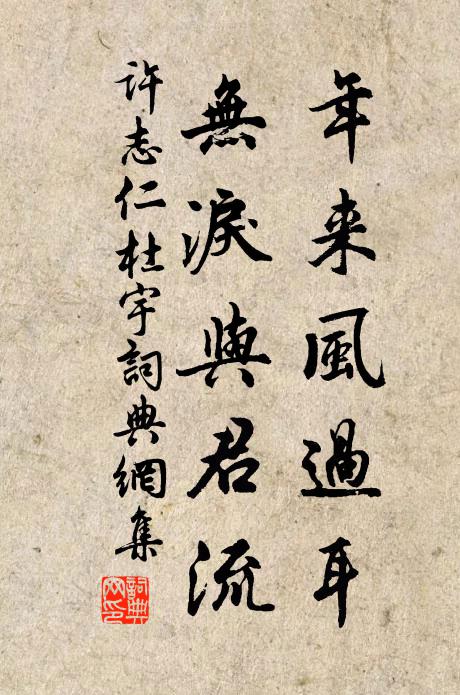 年来風過耳
無淚與君流
許志仁杜宇詞典網集
詞典網印